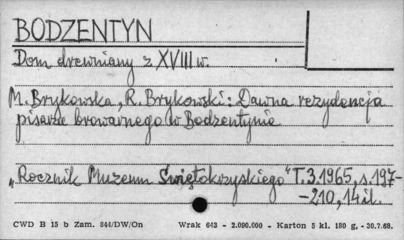 BODZENTYN
Dom drewniany z XVIII w.
M. Brykowska, R. Brykowski: Dawna rezydencja
pisarza browarnego w Bodzentynie
„Rocznik Muzeum Świętokrzyskiego" T.3.1965, s.197-
-210, 14 il.
CWD B 15 b Zam. 844/DW/On Wrak 643 - 2.090.000 - Karton 5 kl. 180 g, - 30.7.68.